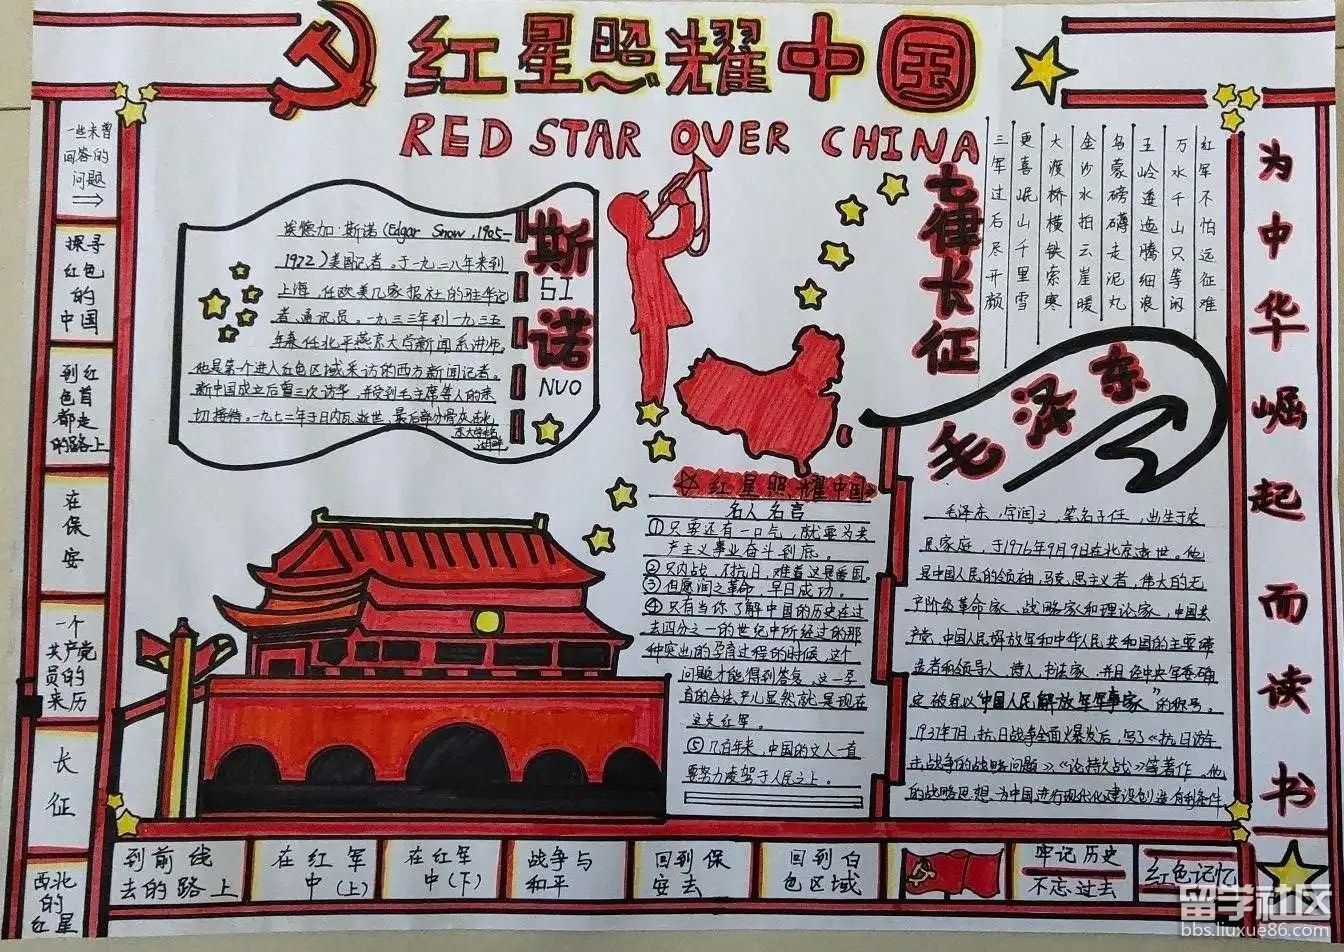 红星照耀中国
RED STAR OVER CHINA
一些未曾
回答的
问题
探寻
红色
的
中国
到红
色首
都走
的路上
在
保
安
一个
共产党
员的
来历
长
征
西北
的
红星
斯
SI
诺
NUO
埃德加·斯诺(Edgar Snow,1905-
1972)美国记者。于一九二八年来到
上海,任欧美几家报社的驻华记
者、通讯员。一九三三年到一九三五
年兼任北平燕京大学新闻系讲师。
他是第一个进入红色区域采访的西方新闻记者。
新中国成立后曾三次访华,并受到毛主席等人的亲
切接待。一九七二年
逝世,最后部分骨灰
七律长征
红军不怕远征难
万水千山只等闲
五岭逶迤腾细浪
乌蒙磅礴走泥丸
金沙水拍云崖暖
大渡桥横铁索寒
更喜岷山千里雪
三军过后尽开颜
毛泽东
为中华崛起而读书
红星照耀中国
名人名言
①只要还有一口气,就要为共
产主义事业奋斗到底。
②只内战,不抗日,难着这是爱国。
③但愿润之革命,早日成功。
④只有当你了解中国的历史在过
去四分之一的世纪中所经过的那
种突出的孕育过程的时候,这个
问题才能得到答复。这一孕
育的合法产儿显然就是现在
这支红军。
⑤几百年来,中国的文人一直
要努力凌驾于人民之上。
毛泽东,字润之,笔名子任,出生于农
民家庭,于1976年9月9日在北京逝世。他
是中国人民的领袖,马克思主义者,伟大的无
产阶级革命家、战略家和理论家,中国共
产党、中国人民解放军和中华人民共和国的主要缔
造者和领导人,诗人,书法家,并且经中央军委确
定被冠以“中国人民解放军军事家”的称号。
1937年7月,抗日战争全面爆发后,写了《抗日游
击战争的战略问题》《论持久战》等著作。他
的战略思想,为中国进行现代化建设创造有利条件
到前线
去的路上
在红军
中(上)
在红军
中(下)
战争与
和平
回到保
安去
回到白
色区域
牢记历史
不忘过去
红色记忆
留学社区
bbs.liuxue86.com